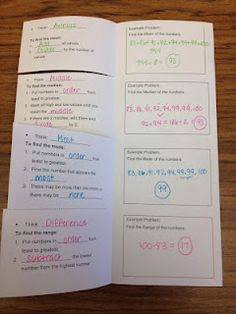 Think: Average
To find the mean:
1. Add all
of values
2. Divide by the number of
values
Example Problem:
Find the Mean of the numbers.
744÷8= 93
Think: Middle
To find the median:
1. Put numbers in order from
least to greatest.
2. Mark off high and low values until you
reach the middle
3. If there are 2 middles, add them and
divide by 2.
Example Problem:
Find the Median of the numbers.
92+94=186÷2= 93
Think: Most
To find the mode:
1. Put numbers in order from
least to greatest.
2. Find the number that appears the
most.
3. There may be more than one mode or
there may be none.
Example Problem:
Find the Mode of the numbers.
83, 86, 91, 92, 94, 99, 99, 100
99
Think: Difference
To find the range:
1. Put numbers in order from
least to greatest.
2. Subtract the lowest
number from the highest number.
Example Problem:
Find the Range of the numbers.
100-83= 17